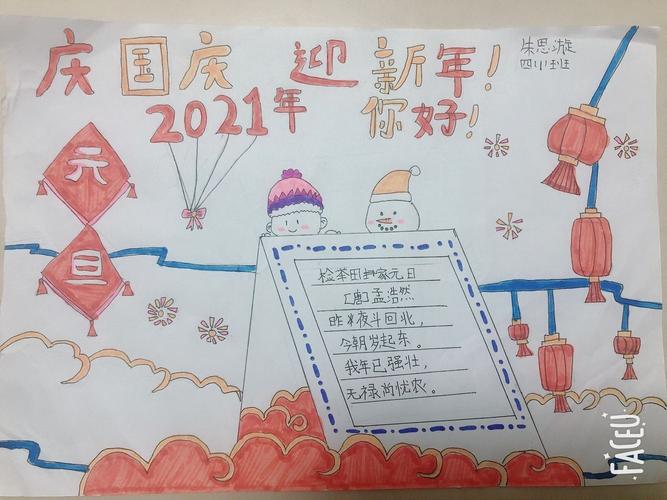 庆国庆 迎新年!
朱思漩
四(1)班
2021年 你好!
元
旦
检茶田封家元日
[唐]孟浩然
昨半夜斗回北，
今朝岁起东。
我年已强壮，
无禄尚忧农。
FACEU